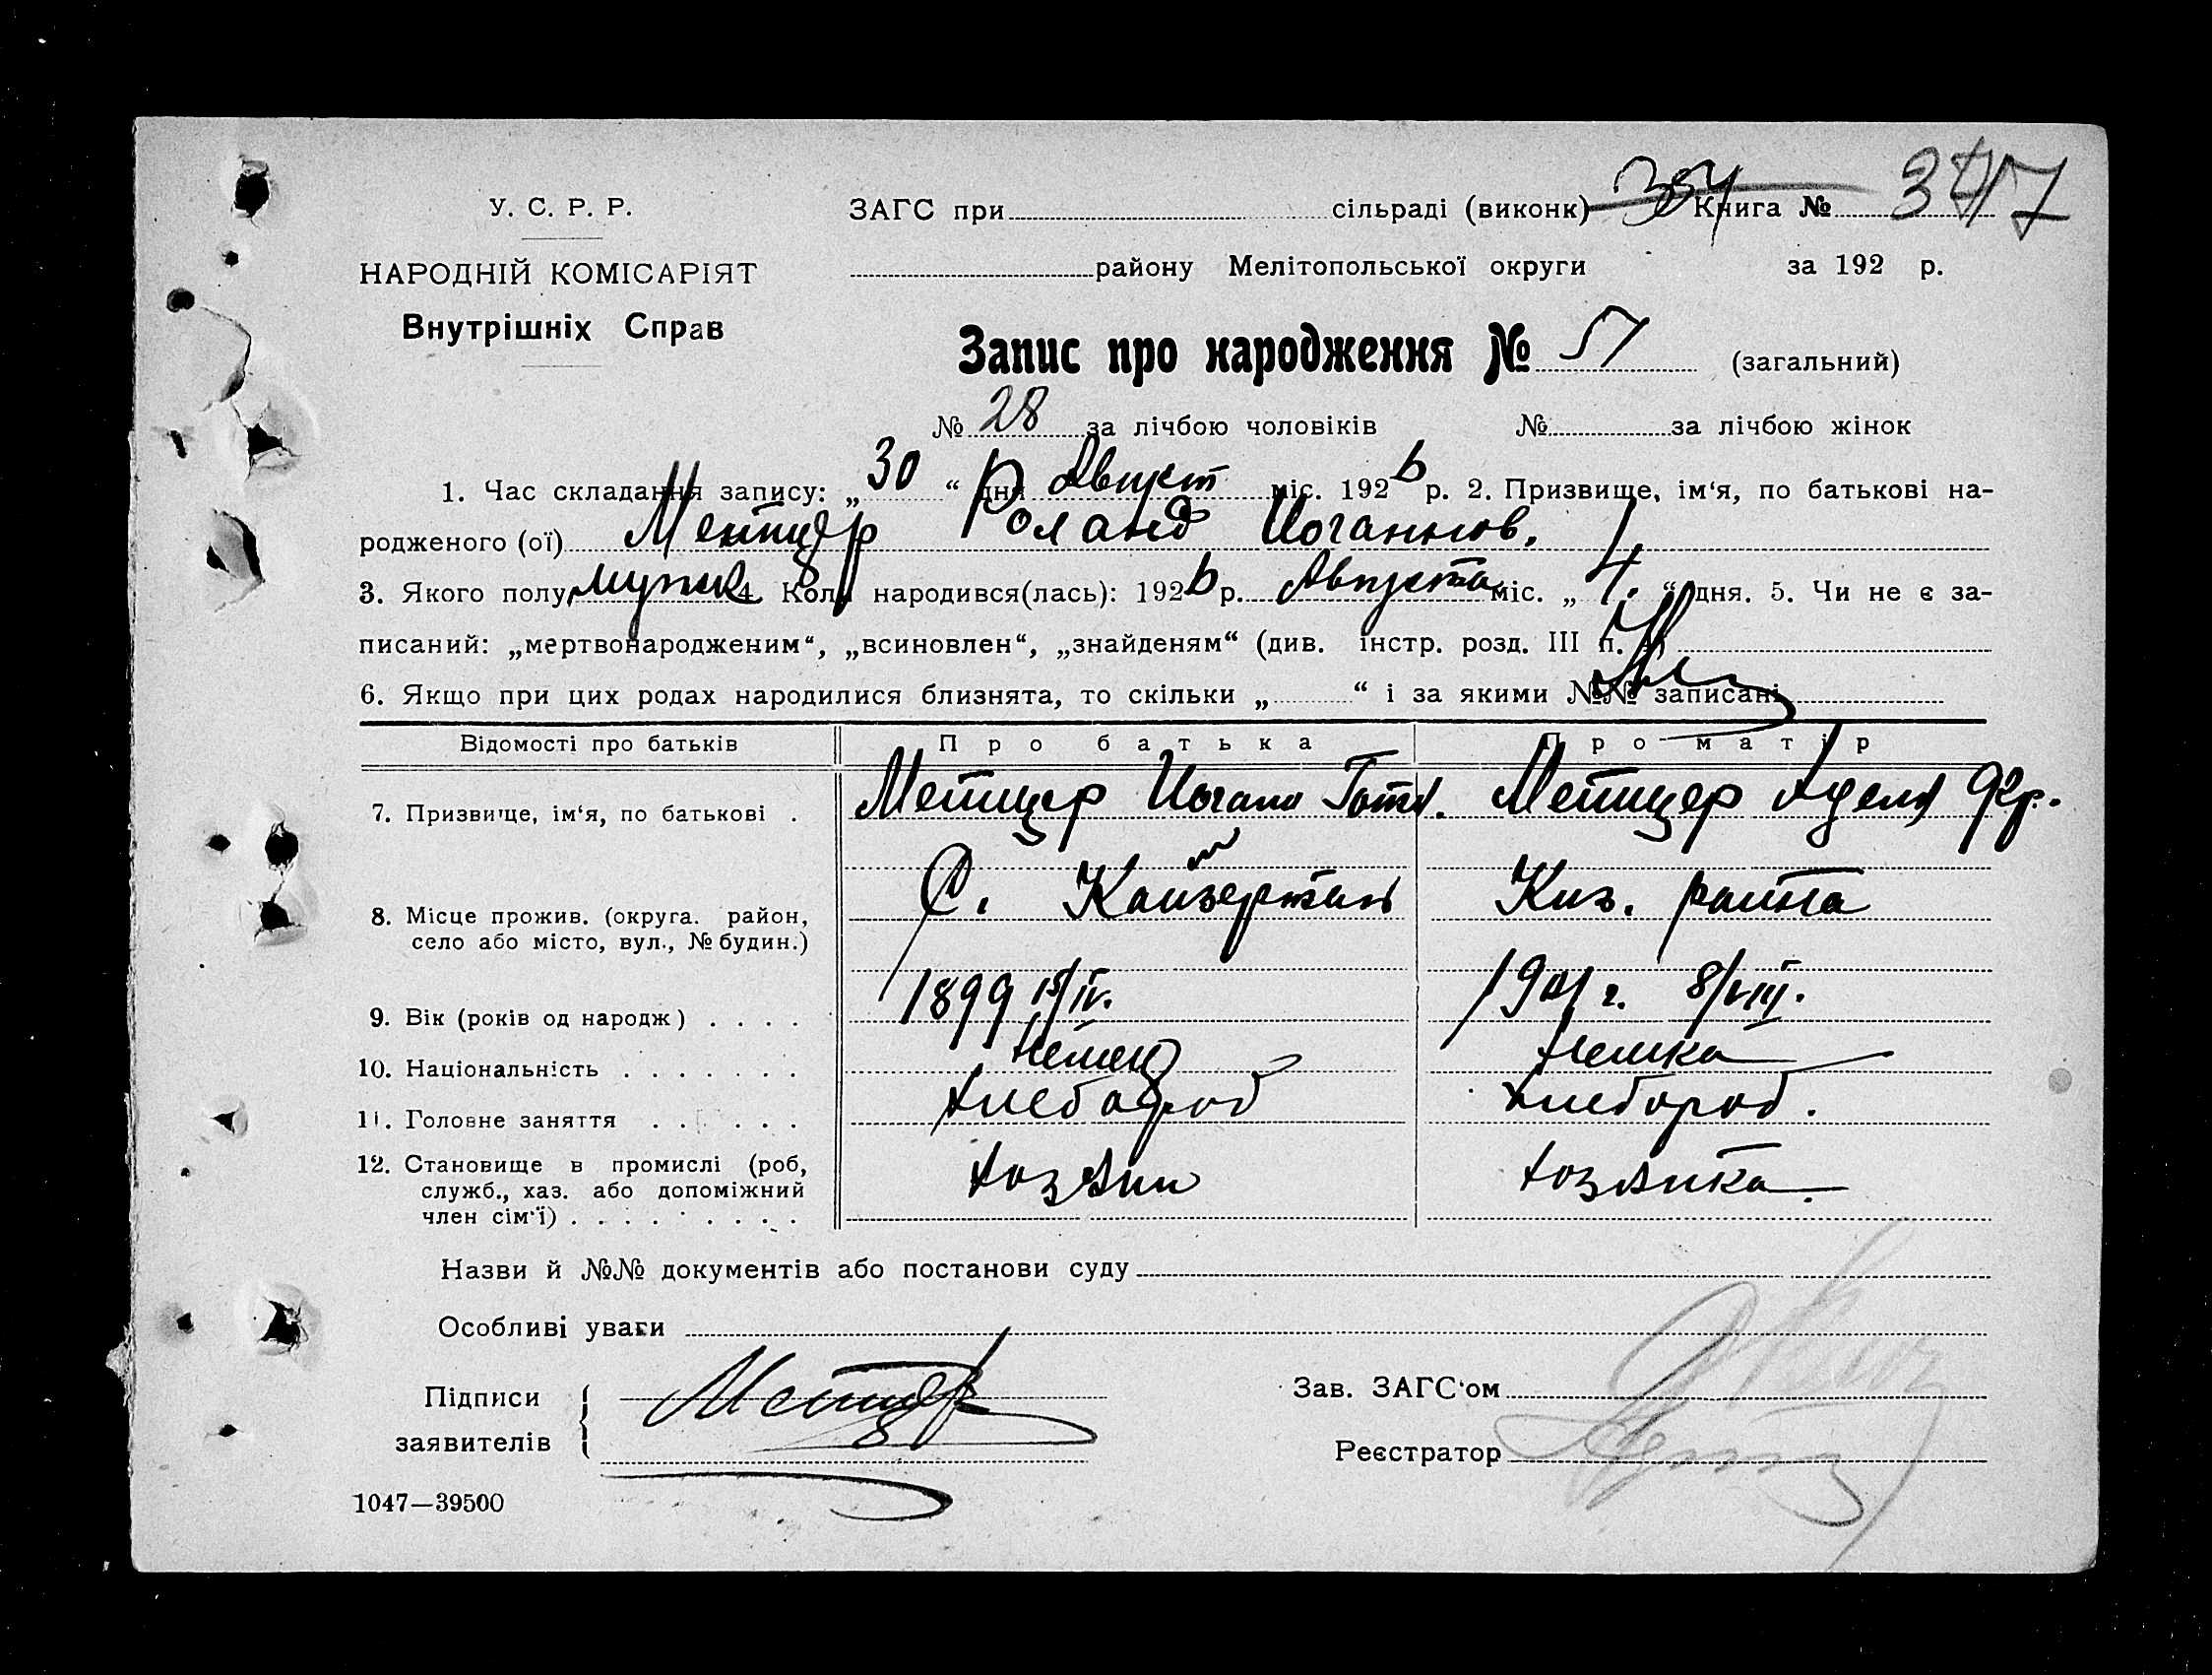 У. С. Р. Р.
НАРОДНІЙ КОМІСАРІЯТ
Внутрішніх Справ
ЗАГС при сільраді (виконк) Книга №
району Мелітопольської округи за 192 р.
Запис про народження № 51 (загальний)
№ 28 за лічбою чоловіків № за лічбою жінок
1. Час складання запису: „30“ дня Август міс. 1926 р. 2. Призвище, ім‘я, по батькові на-
родженого (ої) Метцер Роланд Иоганнов.
3. Якого полу мужск 4. Коли народився(лась): 1926 р. Августа міс. „4.“ дня. 5. Чи не є за-
писаний: „мертвонародженим“, „всиновлен“, „знайденям“ (див. інстр. розд. III п.
6. Якщо при цих родах народилися близнята, то скільки „ “ і за якими №№ записані
Відомості про батьків Про батька Про матір
7. Призвище, ім‘я, по батькові . Метцер Иоган Готл. Метцер Адел
8. Місце прожив. (округа. район, село або місто, вул., № будин.) С. Кайзерталь района
9. Вік (років од народж) . . . . 1899 15/IV. 1901 г. 8/VIII.
10. Національність . . . . . . . Немец Немка
11. Головне заняття . . . . . . Хлебороб Хлебороб.
12. Становище в промислі (роб, служб., хаз. або допоміжний член сім‘ї) . . . . . . . . . Хозяин Хозяйка.
Назви й №№ документів або постанови суду
Особливі уваги
Підписи
заявителів
Метцер
Зав. ЗАГС‘ом
Реєстратор
1047—39500